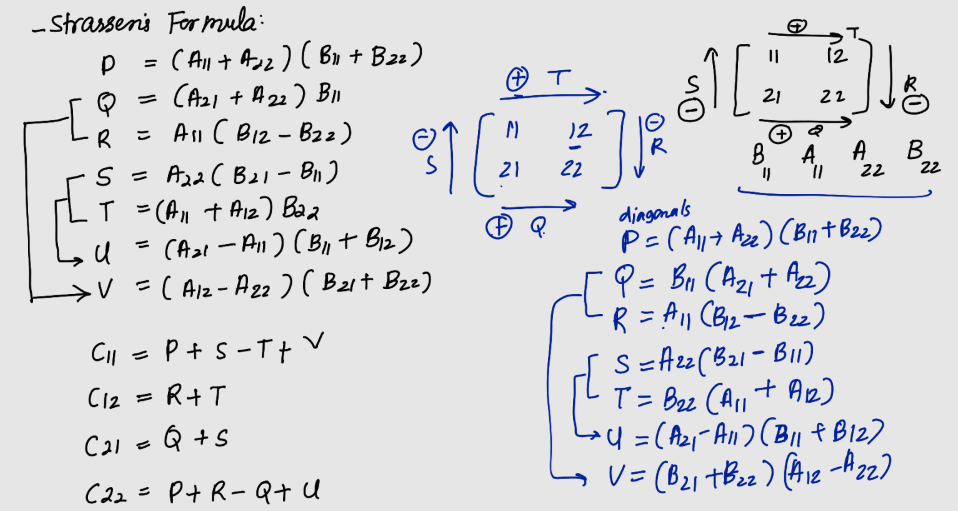 - Strassen's Formula:
P = (A11 + A22) (B11 + B22)
Q = (A21 + A22) B11
R = A11 (B12 - B22)
S = A22 (B21 - B11)
T = (A11 + A12) B22
U = (A21 - A11) (B11 + B12)
V = (A12 - A22) (B21 + B22)
C11 = P + S - T + V
C12 = R + T
C21 = Q + S
C22 = P + R - Q + U
⊕ T
⊖ S
11 12
21 22
⊖ R
⊕ Q
⊕ T
S ⊖
11 12
21 22
R ⊖
⊕ Q
B11 A11 A22 B22
diagonals
P = (A11 + A22) (B11 + B22)
Q = B11 (A21 + A22)
R = A11 (B12 - B22)
S = A22 (B21 - B11)
T = B22 (A11 + A12)
U = (A21 - A11) (B11 + B12)
V = (B21 + B22) (A12 - A22)